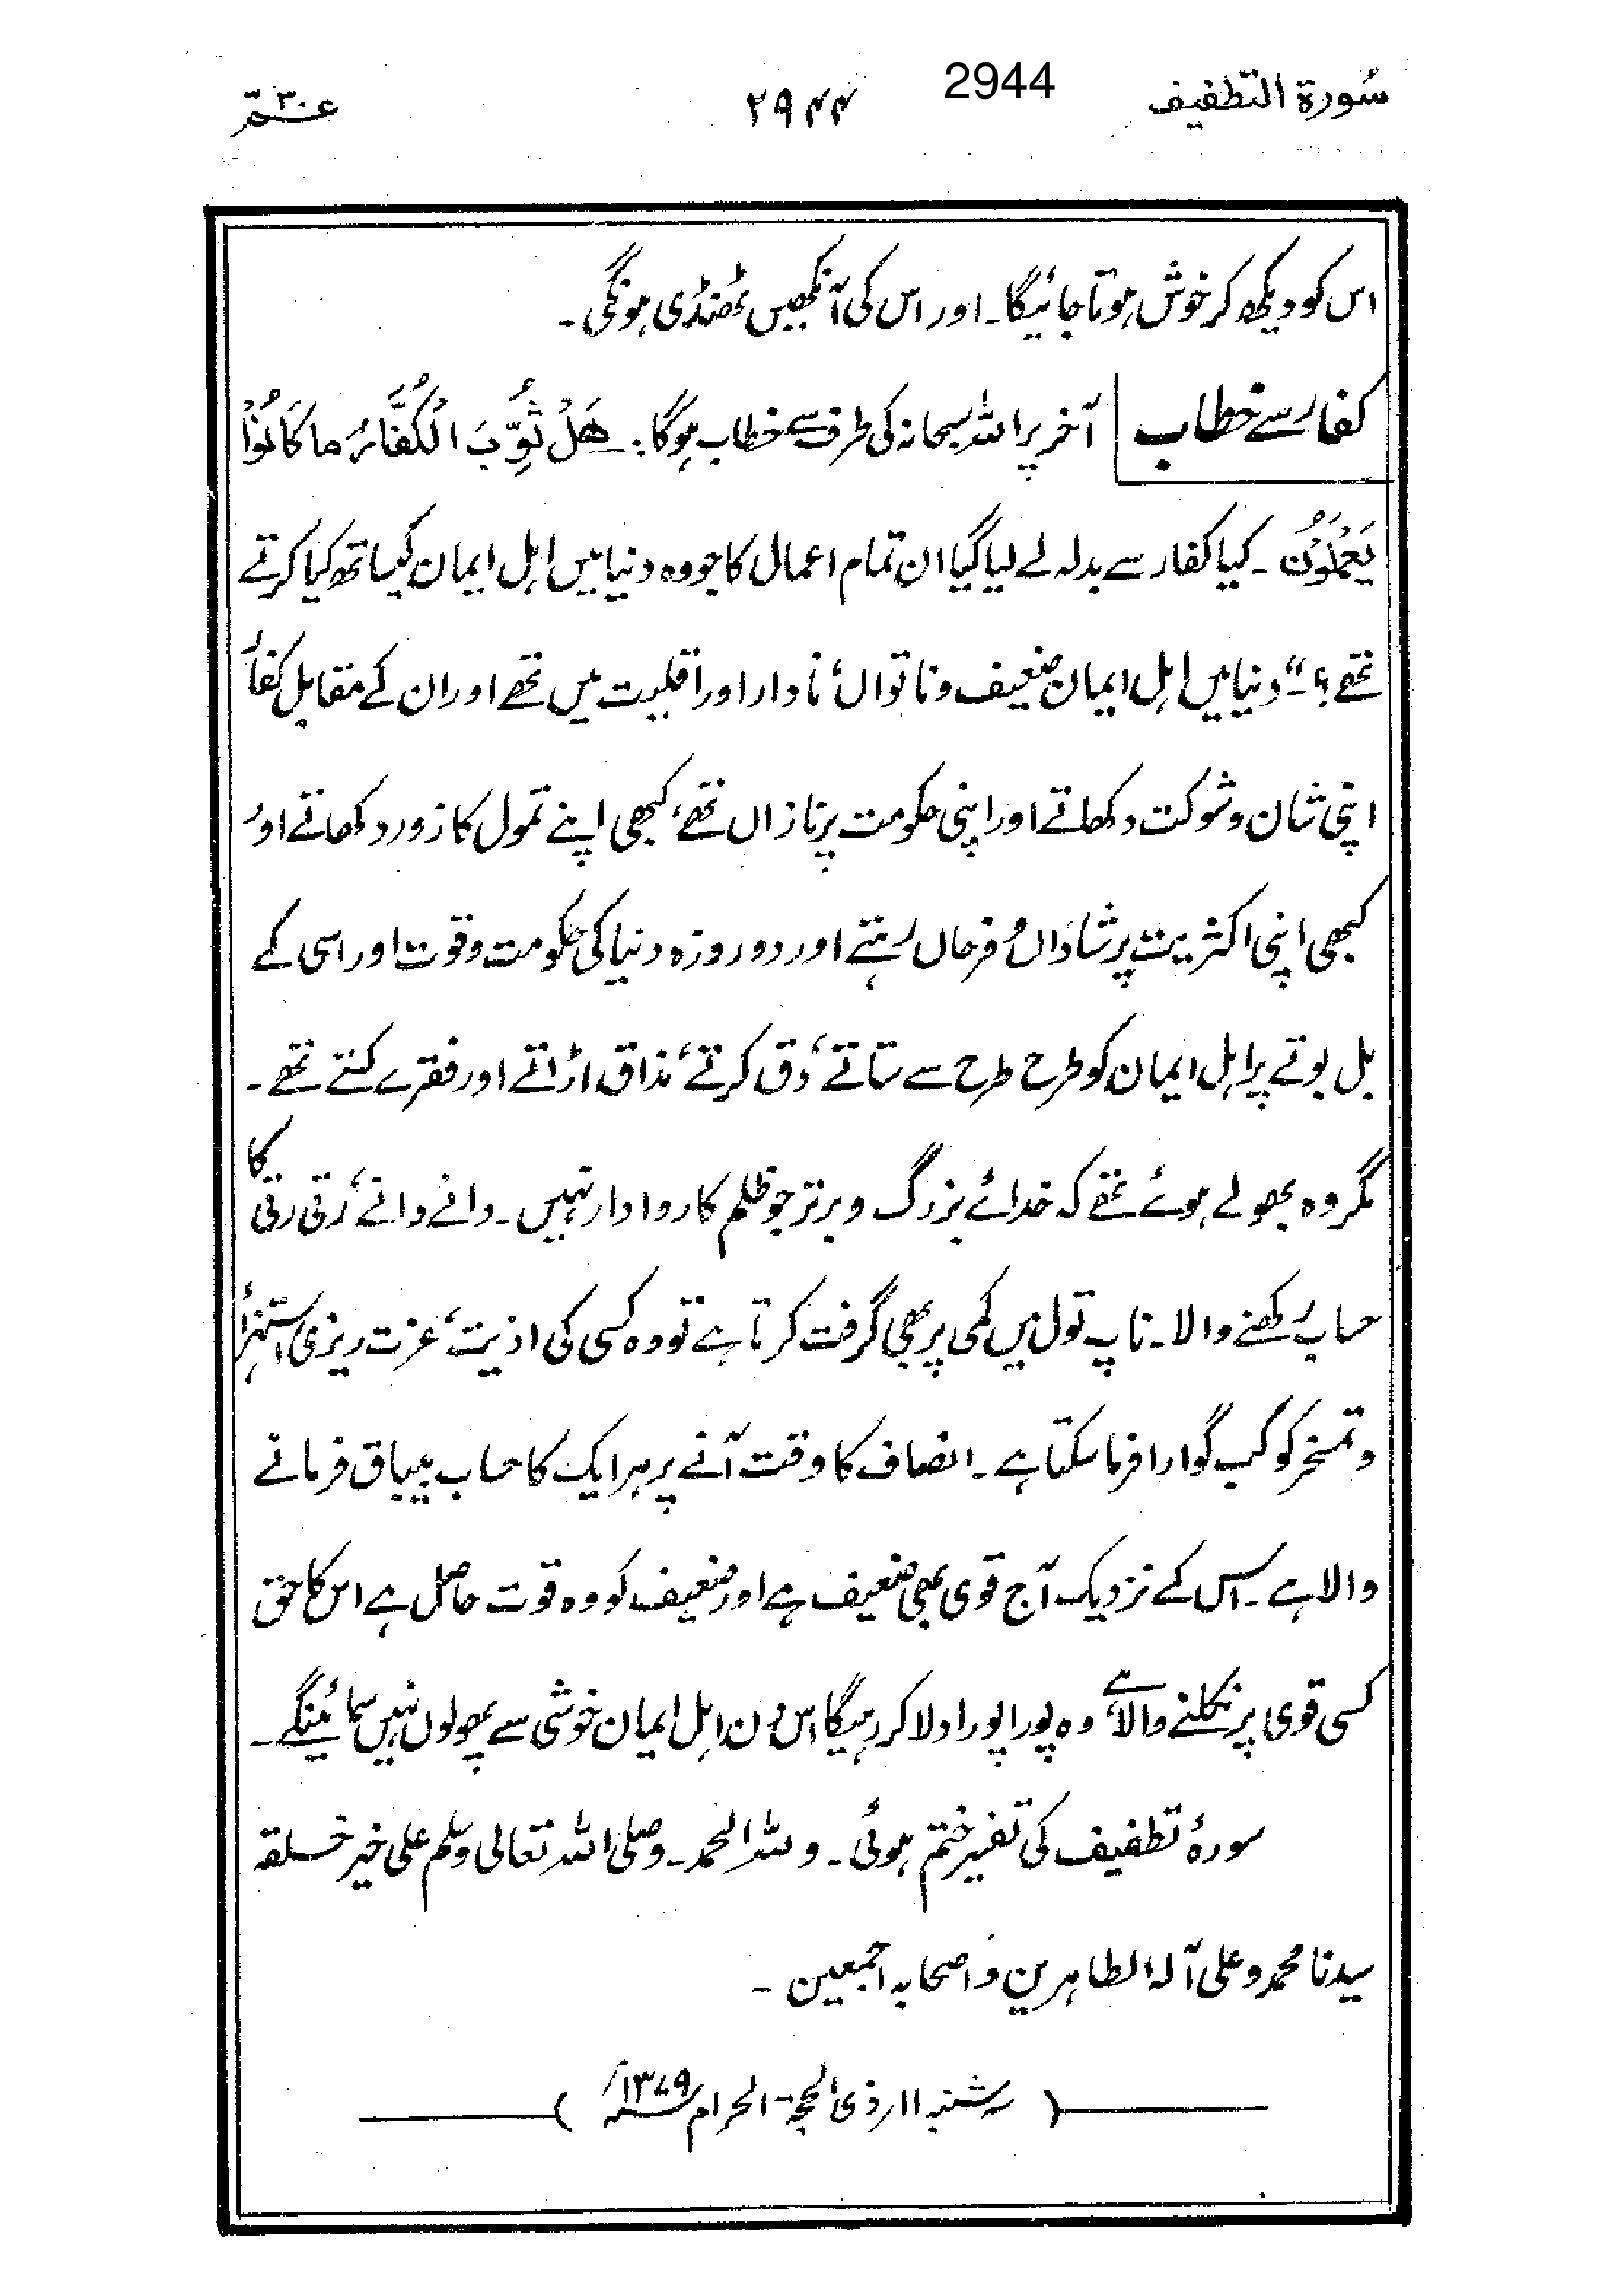 سُورة التطفيف 2944 ۲۹۴۴ عمّ ۳۰
اس کو دیکھ کر خوش ہوتا جائیگا۔ اور اس کی آنکھیں ٹھنڈی ہونگی۔
کفار سے خطاب آخر پر اللہ سبحانہ کی طرف سے خطاب ہوگا: هَلْ ثُوِّبَ الْكُفَّارُ ما كَانُوْا
يَعْمَلُوْنَ ۔ کیا کفار سے بدلہ لے لیا گیا ان تمام اعمال کا جو وہ دنیا میں اہل ایمان کیساتھ کیا کرتے
تھے؟“۔ دنیا میں اہل ایمان ضعیف و ناتواں، نادار اور اقلیت میں تھے اور ان کے مقابل کفار
اپنی شان و شوکت دکھاتے اور اپنی حکومت پر نازاں تھے، کبھی اپنے تمول کا زور دکھاتے اور
کبھی اپنی اکثریت پر شاداں و فرحاں رہتے اور دو روزہ دنیا کی حکومت و قوت اور اسی کے
بل بوتے پر اہل ایمان کو طرح طرح سے ستاتے، دق کرتے، مذاق اڑاتے اور فقرے کستے تھے۔
مگر وہ بھولے ہوئے تھے کہ خدائے بزرگ و برتر جو ظلم کا روادار نہیں۔ دانے دانے، رتی رتی کا
حساب رکھنے والا۔ ناپ تول میں کمی پر بھی گرفت کرتا ہے تو وہ کسی کی اذیت، عزت ریزی، استہزأ
و تمسخر کو کب گوارا فرما سکتا ہے۔ انصاف کا وقت آنے پر ہر ایک کا حساب بیباق فرمانے
والا ہے۔ اس کے نزدیک آج قوی بھی ضعیف ہے اور ضعیف کو وہ قوت حاصل ہے اس کا حق
کسی قوی پر نکلنے والا ہے، وہ پورا پورا دلا کر رہیگا اس دن اہل ایمان خوشی سے پھولوں نہیں سمائینگے۔
سورۂ تطفیف کی تفسیر ختم ہوئی۔ وللہ الحمد۔ وصلی اللہ تعالی وسلم علی خیر خلقہ
سیدنا محمد و علی آلہ الطاہرین و اصحابہ اجمعین۔
( سہ شنبہ ۱۱؍ ذی الحجۃ الحرام ۱۳۷۹؁ھ )